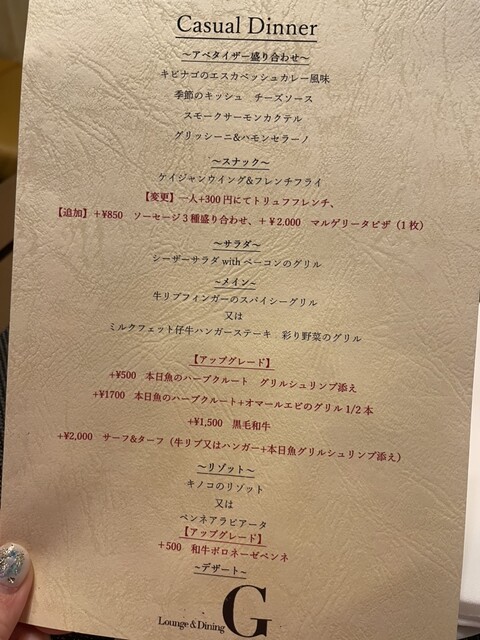 Casual Dinner
～アペタイザー盛り合わせ～
キビナゴのエスカベッシュカレー風味
季節のキッシュ　チーズソース
スモークサーモンカクテル
グリッシーニ&ハモンセラーノ
～スナック～
ケイジャンウイング&フレンチフライ
【変更】一人+300円にてトリュフフレンチ、
【追加】+¥850　ソーセージ3種盛り合わせ、+￥2.000　マルゲリータピザ（1枚）
～サラダ～
シーザーサラダ withベーコンのグリル
～メイン～
牛リブフィンガーのスパイシーグリル
又は
ミルクフェット仔牛ハンガーステーキ　彩り野菜のグリル
【アップグレード】
+¥500　本日魚のハーブクルート　グリルシュリンプ添え
+¥1700　本日魚のハーブクルート+オマールエビのグリル1/2本
+¥1,500　黒毛和牛
+¥2,000　サーフ&ターフ（牛リブ又はハンガー+本日魚グリルシュリンプ添え）
～リゾット～
キノコのリゾット
又は
ペンネアラビアータ
【アップグレード】
+500　和牛ボロネーゼペンネ
～デザート～
Lounge & Dining G